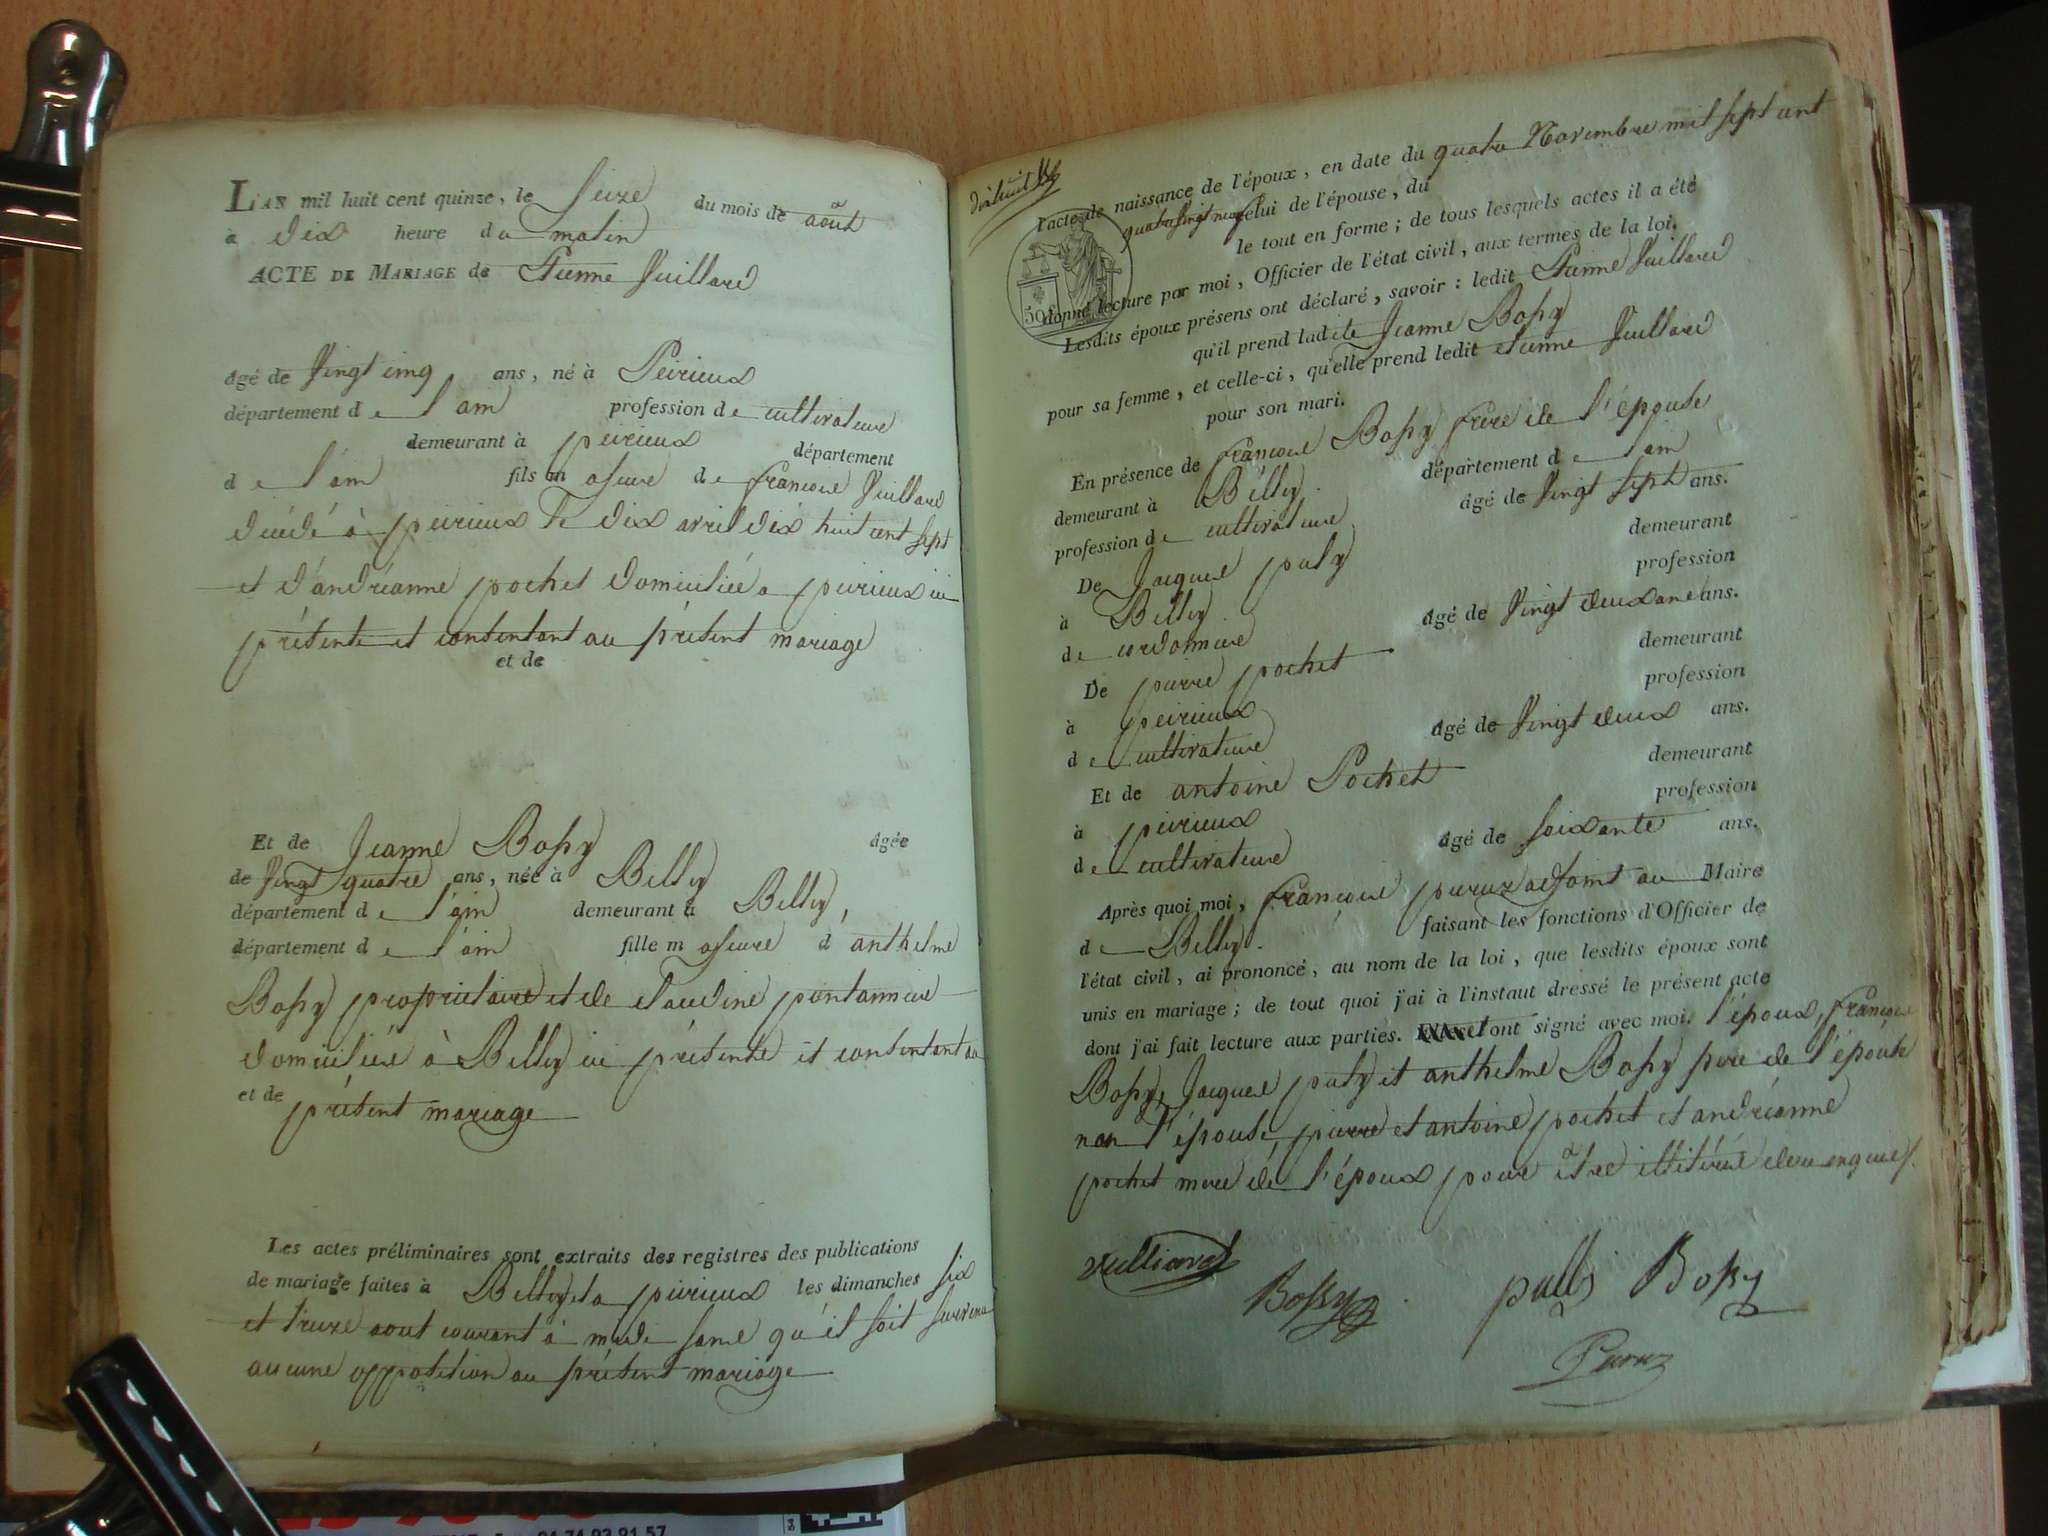 L'AN mil huit cent quinze, le Seize du mois de août
à dix heure du matin
ACTE DE MARIAGE de Etienne Vuillard
âgé de Vingt cinq ans, né à Peirieux
département de l'ain profession de cultivateur
demeurant à peirieux département
de l'ain fils majeur de françois Vuillard
décédé à peirieux le dix avril dix huit cent sept
et d'andréanne pochet domiciliée a peirieux ici
présente et consentant au présent mariage
et de
Et de Jeanne Bossy âgée
de Vingt quatre ans, née à Belley
département de l'ain demeurant à Belley,
département de l'ain fille majeure d'anthelme
Bossy propriétaire et de claudine pontannier
domiciliés à Belley ici présents et consentant au
et de présent mariage
Les actes préliminaires sont extraits des registres des publications
de mariage faites à Belley et a peirieux les dimanches six
et treize aout courant à midi sans qu'il soit survenu
aucune opposition au présent mariage
l'acte de naissance de l'époux, en date du quatre Novembre mil sept cent
quatre vingt neuf celui de l'épouse, du
le tout en forme; de tous lesquels actes il a été
donné lecture par moi, Officier de l'état civil, aux termes de la loi.
50
Lesdits époux présens ont déclaré, savoir: ledit Etienne Vuillard
qu'il prend ladite Jeanne Bossy
pour sa femme, et celle-ci, qu'elle prend ledit etienne Vuillard
pour son mari.
En présence de françois Bossy frere de l'épouse
demeurant à Belley département de l'ain
profession de cultivateur âgé de Vingt sept ans.
De Jacques puly demeurant
à Belley profession
de cordonnier âgé de Vingt deux ans ans.
De pierre pochet demeurant
à peirieux profession
de cultivateur âgé de Vingt deux ans.
Et de antoine Pochet demeurant
à peirieux profession
de cultivateur âgé de soixante ans.
Après quoi moi, françois peruz adjoint au Maire
de Belley. faisant les fonctions d'Officier de
l'état civil, ai prononcé, au nom de la loi, que lesdits époux sont
unis en mariage; de tout quoi j'ai à l'instant dressé le présent acte
dont j'ai fait lecture aux parties. ont signé avec moi. l'époux, françois
Bossy, Jacques puly et anthelme Bossy pere de l'épouse
non l'épouse, pierre et antoine pochet et andréanne
pochet mere de l'époux pour être illitérés de ce enquis.
Vulliard
Bossy
pulli Bossy
Peruz